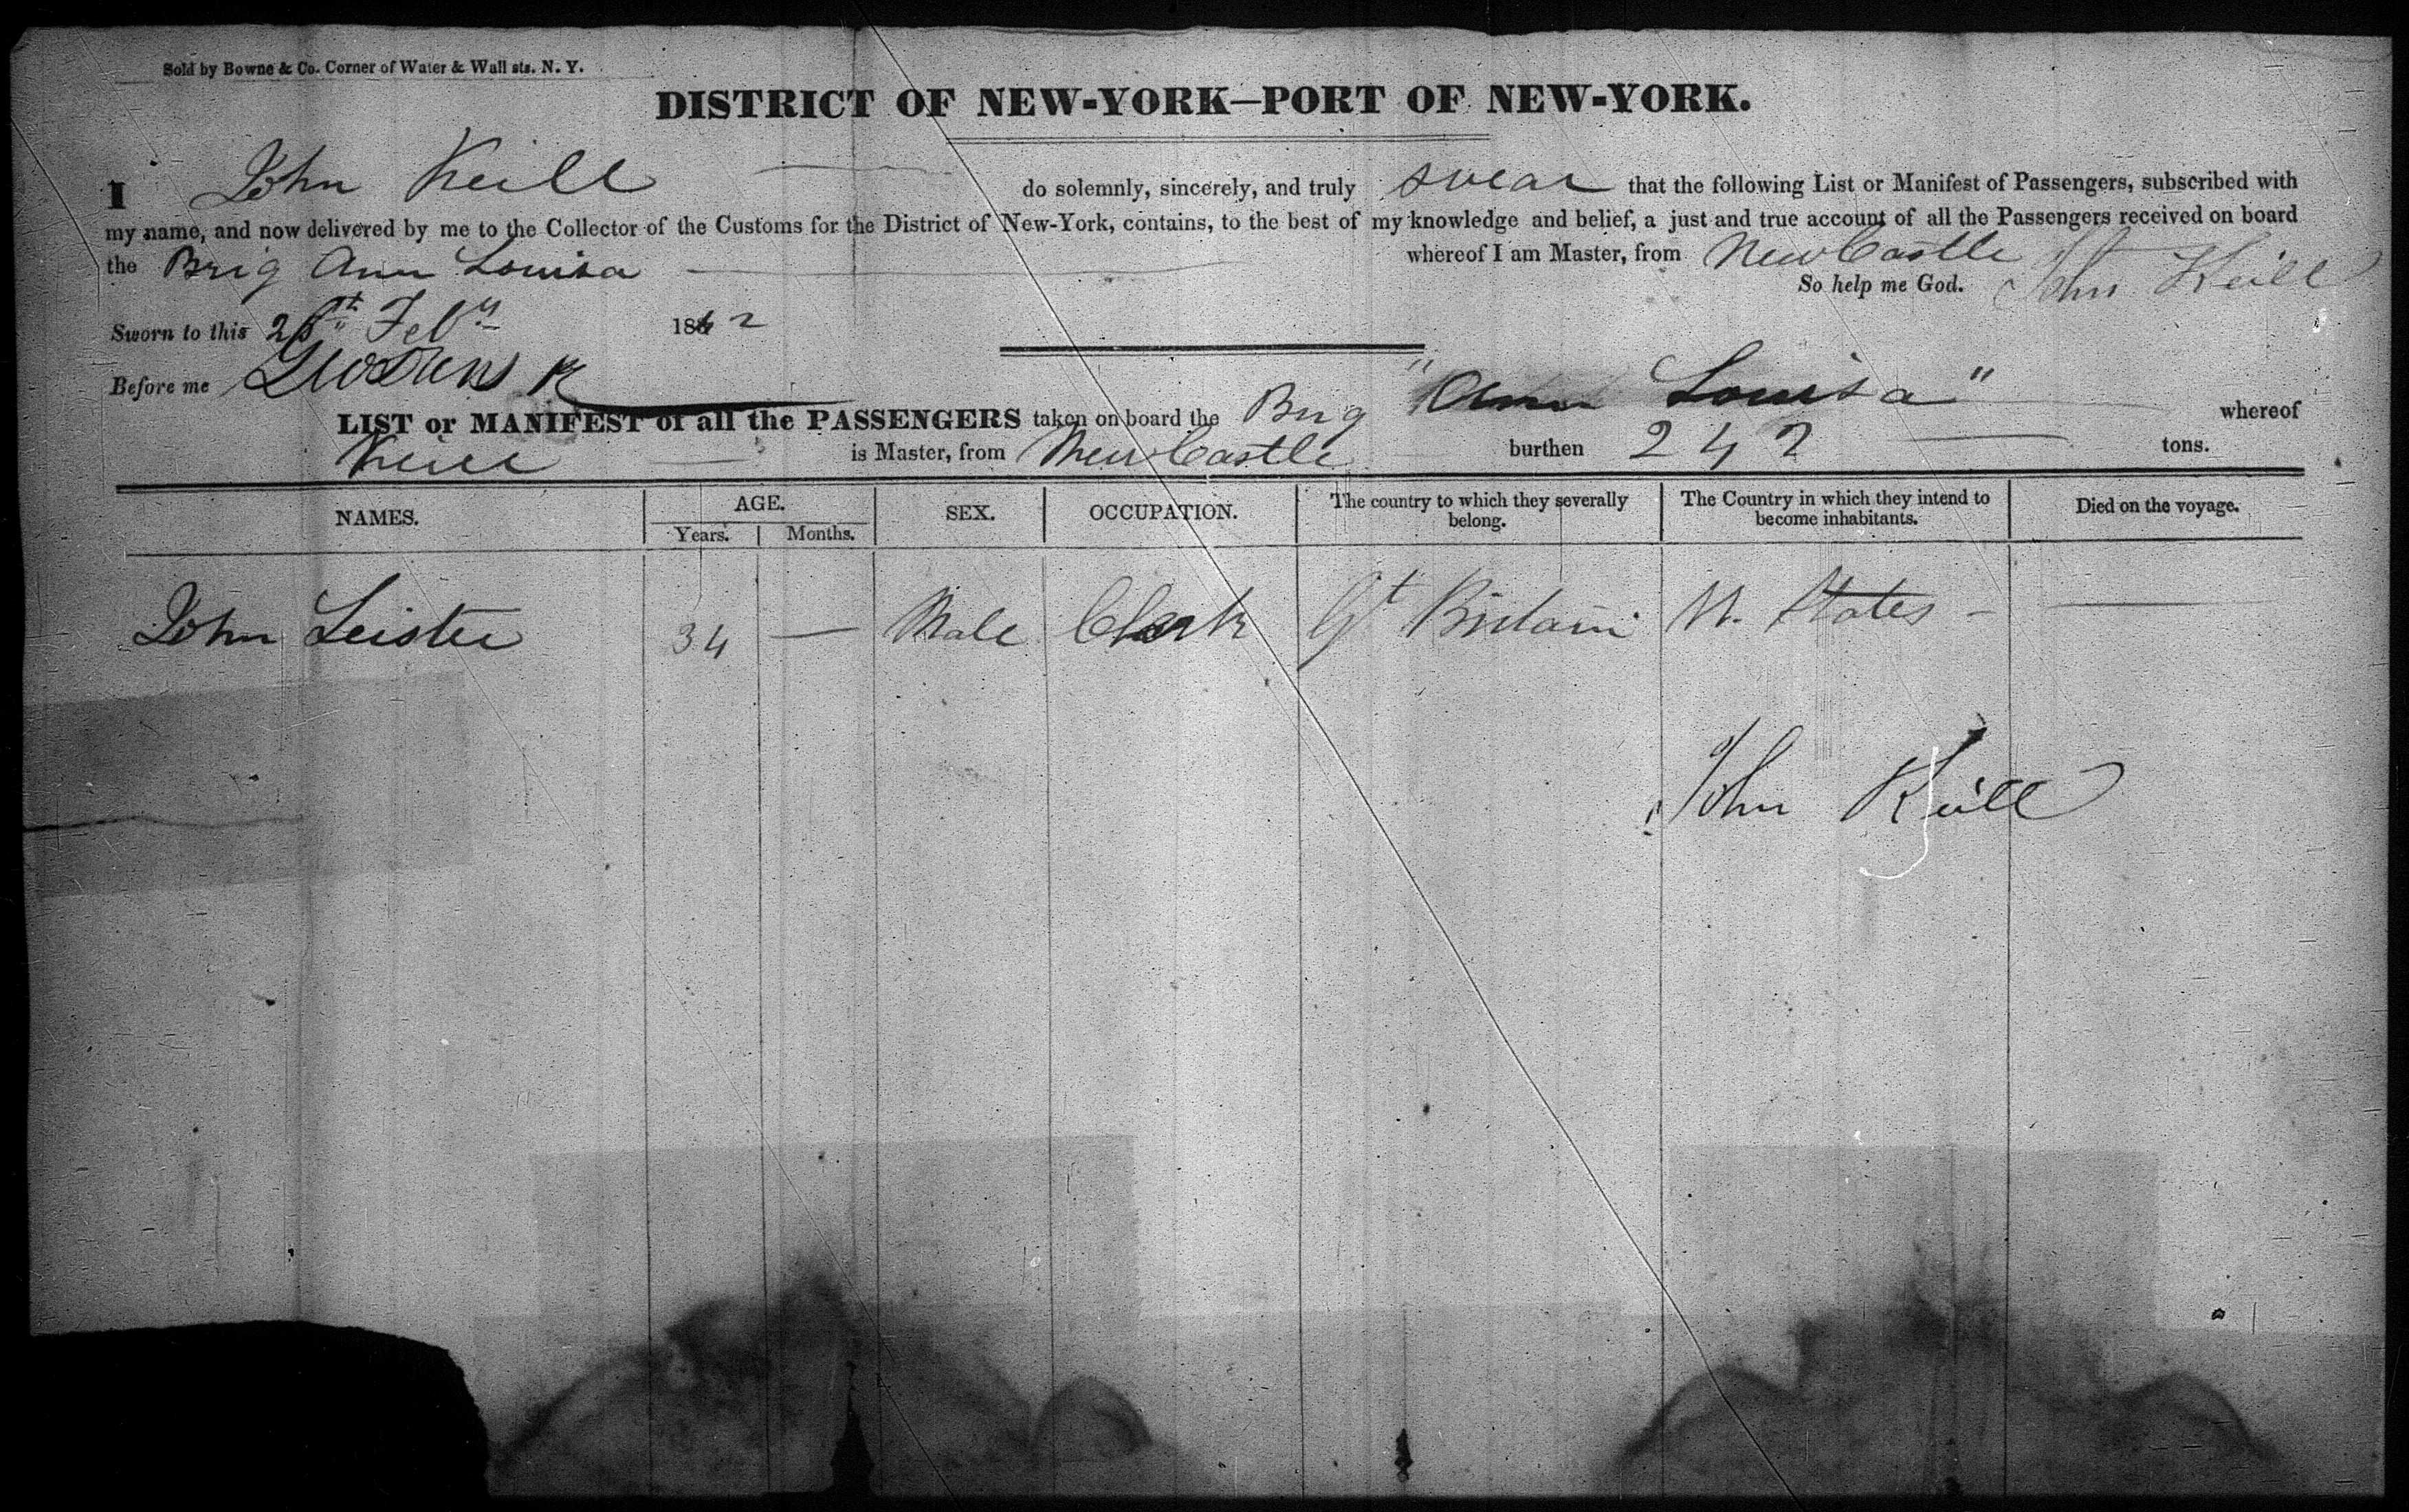 Sold by Bowne & Co. Corner of Water & Wall sts. N. Y.
DISTRICT OF NEW-YORK—PORT OF NEW-YORK.
I John Keill do solemnly, sincerely, and truly swear that the following List or Manifest of Passengers, subscribed with
my name, and now delivered by me to the Collector of the Customs for the District of New-York, contains, to the best of my knowledge and belief, a just and true account of all the Passengers received on board
the Brig Ann Louisa — whereof I am Master, from NewCastle
So help me God. John Keill
Sworn to this Feby 1842
Before me
LIST or MANIFEST of all the PASSENGERS taken on board the Brig "Ann Louisa" whereof
Keill — is Master, from NewCastle burthen 242 — tons.
NAMES. AGE. SEX. OCCUPATION. The country to which they severally belong. The Country in which they intend to become inhabitants. Died on the voyage.
Years. Months.
John Leister 34 — Male Clerk Gt Britain U. States - —
John Keill